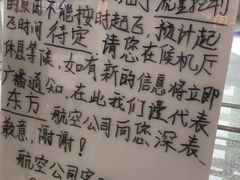 的原因不能按时起飞，预计起
飞时间 待定 请您在候机厅
休息等候，如有新的信息将立即
广播通知，在此我们谨代表
东方 航空公司向您深表
歉意，谢谢！
航空公司